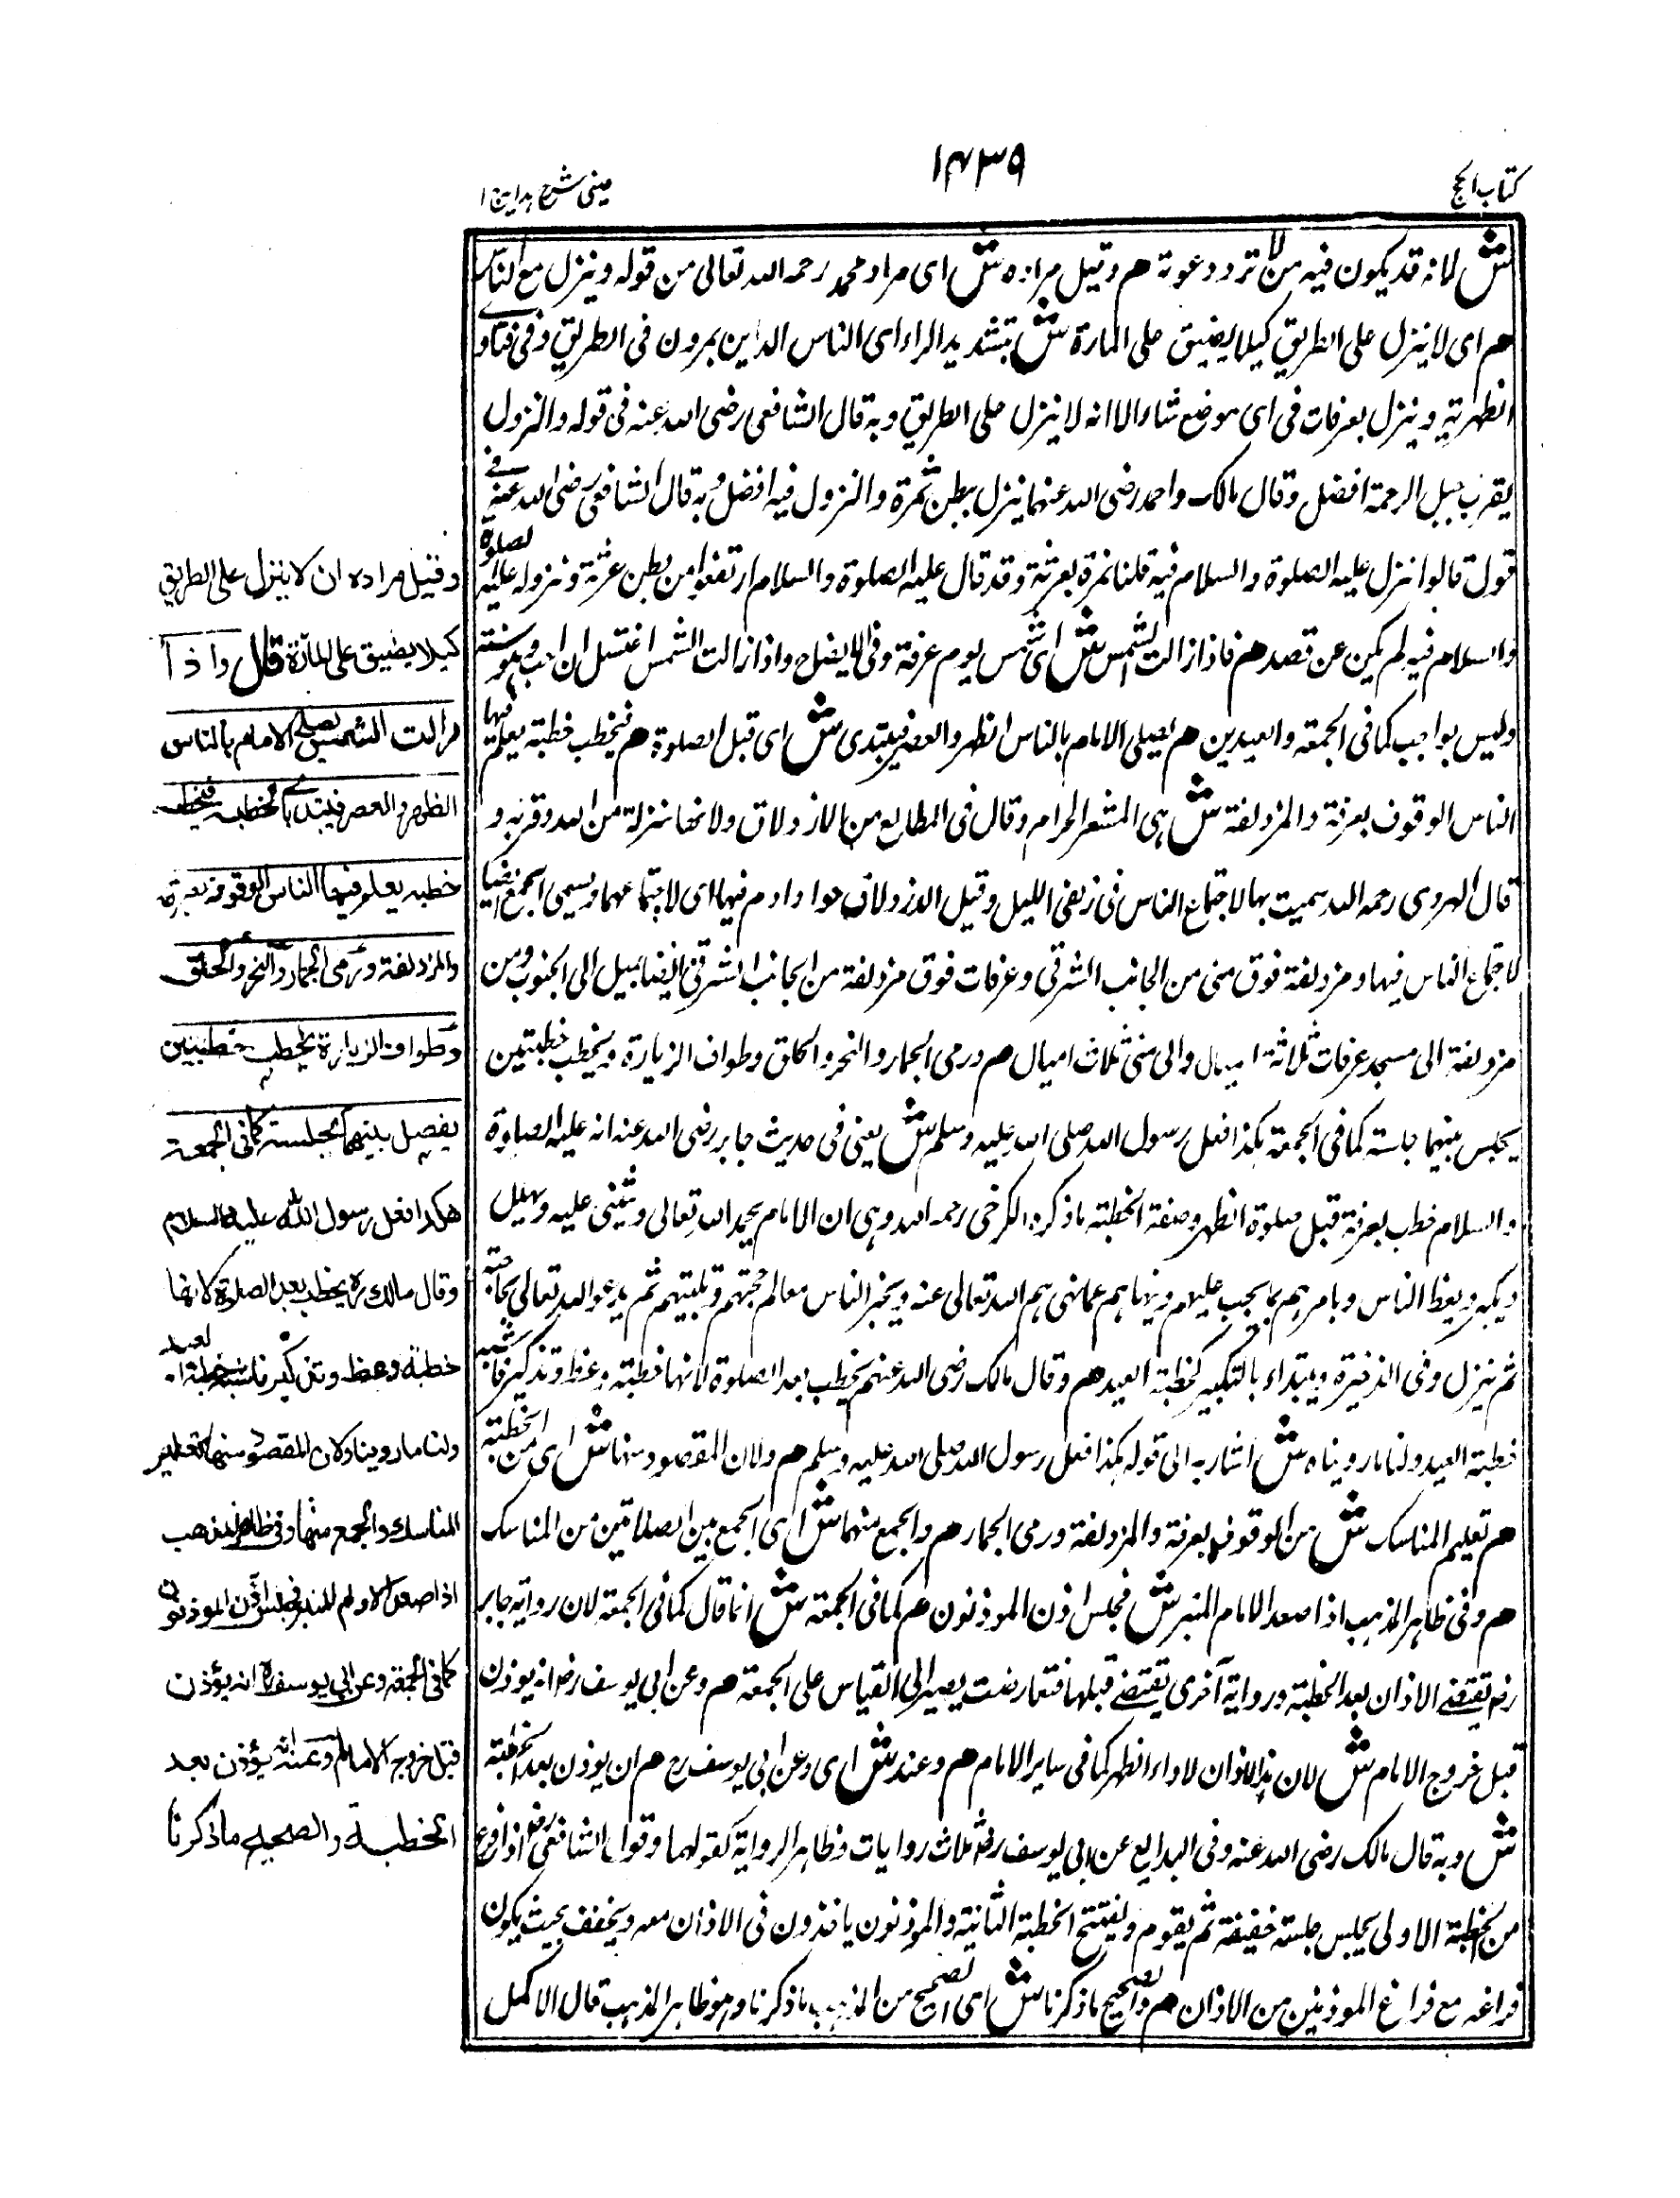 كتاب الحج
١٤٣٩
عینی شرح ہدایہ ج ١
ش لانه قد يكون فيه من لا ترد دعوته هم وقيل مراده ش اى مراد محمد رحمه الله تعالى من قوله وينزل مع الناس
هم اى لا ينزل على الطريق كيلا يضيق على المارة ش بتشديد الراء اى الناس الذين يمرون فى الطريق وفى فتاوے
الظهرية وينزل بعرفات فى اى موضع شاء الا انه لا ينزل على الطريق وبه قال الشافعى رضى الله عنه فى قوله والنزول
بقرب جبل الرحمة افضل وقال مالك واحمد رضى الله عنهما ينزل ببطن نمرة والنزول فيه افضل وبه قال الشافعى رضى الله عنه فے
قول قالوا نزل عليه الصلوة والسلام فيه قلنا نمرة بعرنة وقد قال عليه الصلوة والسلام ارتفعوا من بطن عرنة ونزوله عليه الصلوة
والسلام فيه لم يكن عن قصد هم فاذا زالت الشمس ش اى شمس يوم عرفة وفى الايضاح واذا زالت الشمس اغتسل ان احب وهو سنة
وليس بواجب كما فى الجمعة والعيدين هم يصلى الامام بالناس الظهر والعصر فيبتدى ش اى قبل الصلوة هم فيخطب خطبة يعلم فيها
الناس الوقوف بعرفة والمزدلفة ش هى المشعر الحرام وقال فى المطالع من الازدلاق ولانها منزلة من الله وقربه و
قال الهروى رحمه الله سميت بها لاجتماع الناس فى زلفى الليل وقيل الازدلاف حوا وادم فيها اى لاجتماعهما ويسمى الجمع ايضا
لاجتماع الناس فيها ومزدلفة فوق منى من الجانب الشرقى وعرفات فوق مزدلفة من الجانب الشرقى ايضا يميل الى الجنوب ومن
مزدلفة الى مسجد عرفات ثلاثة اميال والى منى ثلاث اميال هم ورمى الجمار والنحر والحلق وطواف الزيارة ويخطب خطبتين
يجلس بينهما جلسة كما فى الجمعة هكذا فعل رسول الله صلى الله عليه وسلم ش يعنى فى حديث جابر رضى الله عنه انه عليه الصلوة
والسلام خطب بعرفة قبل صلوة الظهر وصفة الخطبة ما ذكره الكرخى رحمه الله وهى ان الامام يحمد الله تعالى ويثنى عليه ويهلل
ويكبر ويعظ الناس ويامرهم بما يجب عليهم وينهاهم عما نهى هم الله تعالى عنه ويخبر الناس معالم حجتهم وتلبيتهم ثم يدعو الله تعالى بحاجته
ثم ينزل وفى الذخيرة ويبتداء بالتكبير كخطبة العيد هم وقال مالك رضى الله عنهم يخطب بعد الصلوة لانها خطبة وعظ وتذكير فاشبه
خطبة العيد ولنا ما رويناه ش اشار به الى قوله هكذا فعل رسول الله صلى الله عليه وسلم هم ولان المقصود منها ش اى من الخطبة
هم تعليم المناسك ش من الوقوف بعرفة والمزدلفة ورمى الجمار هم والجمع منهما ش اى الجمع بين الصلاتين من المناسك
هم وفى ظاهر المذهب اذا صعد الامام المنبر ش فجلس اذن الموذنون هم كما فى الجمعة ش انما قال كما فى الجمعة لان رواية جابر
رض تقتضے الاذان بعد الخطبة ورواية اخرى تقتضے قبلها فتعارضت يصير الى القياس على الجمعة هم وعن ابى يوسف رض انه يوذن
قبل خروج الامام ش لان هذا الاذان لاداء الظهر كما فى ساير الامام هم وعند ش اى وعن ابى يوسف رح هم ان يوذن بعد الخطبة
ش وبه قال مالك رضى الله عنه وفى البدايع عن ابى يوسف رض ثلاث روايات وظاهر الرواية كقولهما وقول الشافعى رض اذا فرغ
من الخطبة الاولى يجلس جلسة خفيفة ثم يقوم ويفتتح الخطبة الثانية والموذنون ياخذون فى الاذان معه ويخفف بحيث يكون
فراغه مع فراغ الموذنين من الاذان هم والصحيح ما ذكرنا ش اى الصحيح من المذهب ما ذكرنا وهو ظاهر المذهب قال الاكمل
وقيل مراده ان لا ينزل على الطريق
كيلا يضيق على المارة قال واذا
زالت الشمس يصلے الامام بالناس
الظهر والعصر فيبتدے بالخطبة فيخطب
خطبة يعلم فيها الناس الوقوف بعرفة
والمزدلفة ورمى الجمار والنحر والحلق
وطواف الزيارة يخطب خطبتين
يفصل بينهما بجلسة كما فى الجمعة
هكذا فعل رسول الله عليه السلام
وقال مالك رح يخطب بعد الصلوة لانها
خطبة وعظ وتذكير فاشبه خطبة العيد
ولنا ما روينا ولان المقصود منها تعليم
المناسك والجمع منها وفى ظاهر المذهب
اذا صعد الامام المنبر فجلس اذن الموذنون
كما فى الجمعة وعن ابى يوسف رح انه يؤذن
قبل خروج الامام وعنه انه يؤذن بعد
الخطبة والصحيح ما ذكرنا